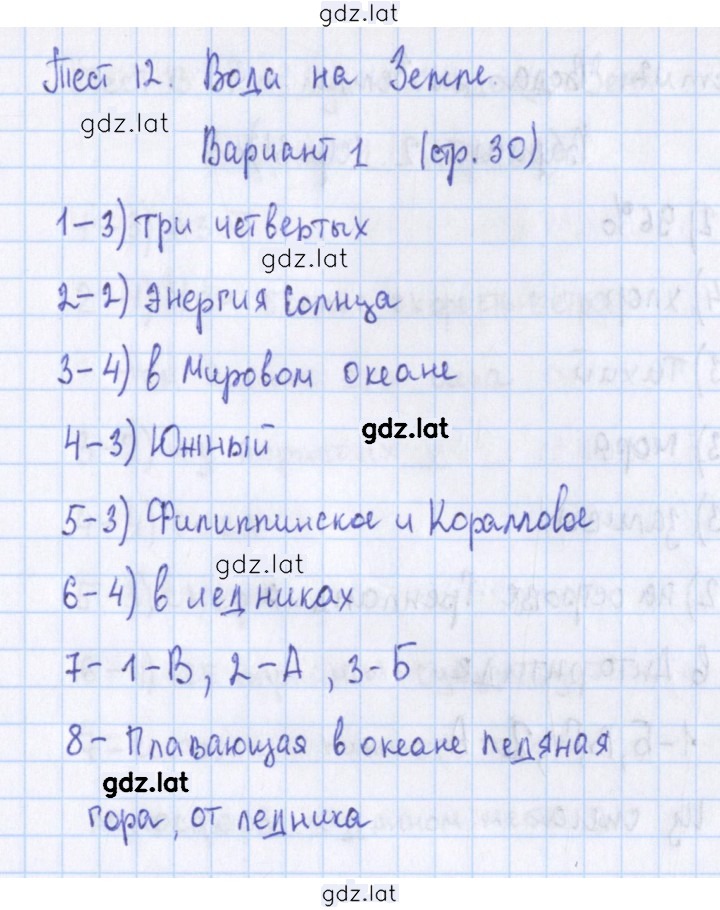 gdz.lat
Тест 12. Вода на Земле.
gdz.lat
Вариант 1 (стр. 30)
1-3) три четвертых
gdz.lat
2-2) Энергия Солнца
3-4) в Мировом океане
gdz.lat
4-3) Южный
5-3) Филиппинское и Коралловое
gdz.lat
6-4) в ледниках
7-1-В, 2-А, 3-Б
8- Плавающая в океане ледяная
gdz.lat
гора, от ледника
gdz.lat